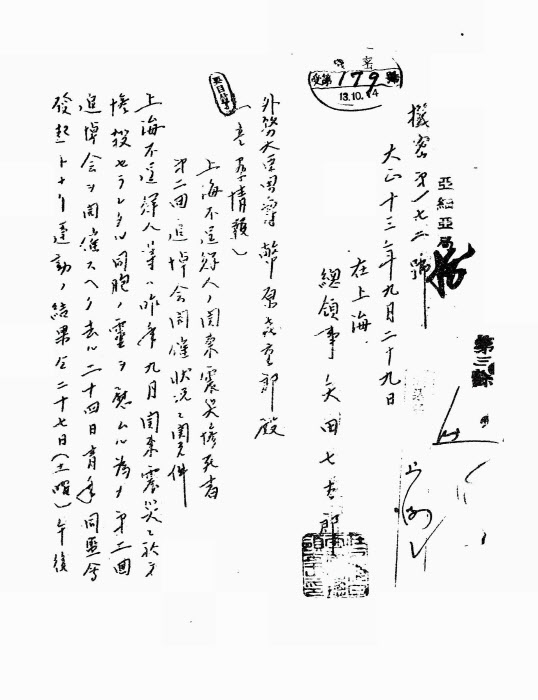 密
受第179號
13.10.14
機密第一七二號
亞細亞局
第三課
大正十三年九月二十九日
在上海
總領事 矢田七太郎
外務大臣男爵 幣原喜重郎殿
上海不逞鮮人ノ関東震災惨死者
第二回追悼会開催状況ニ関スル件
上海不逞鮮人等ハ昨年九月関東震災ニ於テ
惨殺セラレタル同胞ノ靈ヲ慰ムル為メ第二回
追悼会ヲ開催スヘク去ル二十四日青年同盟会
發起トナリ運動ノ結果仝二十七日(土曜)午後